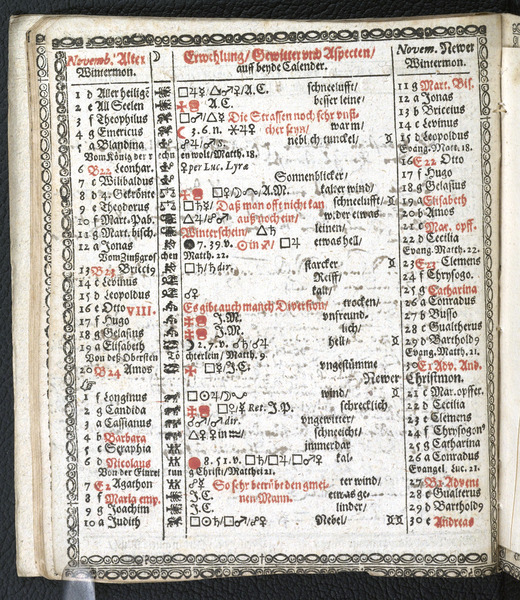 Novemb. Alter Erwehlung/ Gewitter und Aspecten/ Novem. Newer
Wintermon. auff beyde Calender. Wintermon.
1 d Aller heilige □♃☿/ A.C. schneelufft/ 11 g Mart. Bis.
2 e All Seelen A.C. besser leine/ 12 a Jonas
3 f Theophilus Die Strassen noch sehr 13 b Briccius
4 g Emericus 3.6.n. warm/ 14 c Levinus
5 a Blandina neblicht tunckel/ 15 d Leopoldus
Vom König der rechnen wolt/ Matth. 18. Evang. Matt. 18.
6 B22 Leonhar. ♀ per Luc. Lyra 16 E22 Otto
7 c Wilibaldus Sonnenblicker/ 17 f Hugo
8 d 4. Gekrönte A.M. kalter wind/ 18 g Gelasius
9 e Theodorus □♄☿/ Daß man offt nicht kan schneelufft/ 19 a Elisabeth
10 f Mart. Pab. auß noch ein/ wider etwas 20 b Amos
11 g Mart. bisch. Winterschein/ △♄ leinen/ 21 c Mar. opff.
12 a Jonas 7.39.v. ☉ in □♃ etwas hell/ 22 d Cecilia
Vom Zinßgrosch Matth. 22. Evang. Matth. 22.
13 B23 Briccig □♄/♄ dir. starcker 23 E23 Clemens
14 c Levinus Reiff/ 24 f Chrysogo.
15 d Leopoldus ♂♀ kalt/ 25 g Catharina
16 e Otto VIII. Es gibt auch manch Diversion/ trocken/ 26 a Conradus
17 f Hugo J.M. unfreund/ 27 b Busso
18 g Gelasius J.M. lich/ 28 c Gualtherus
19 a Elisabeth 2.7.v. hell/ 29 d Barthold9
Von deß Obersten Töchterlein/ Matth. 9. Evang. Matth. 21.
20 B24 Amos □☿/ J.C. ungestümme 30 E1 Adv. And.
Newer Christmon.
1 f Longinus wind/ 21 c Mar. opffer.
2 g Candida Ret. J.P. schrecklich 22 d Cecilia
3 a Cassianus dir. ungewitter/ 23 e Clemens
4 b Barbara △♀☿ in schneicht/ 24 f Chrysogon9
5 c Seraphia immerdar 25 g Catharina
6 d Nicolaus 8.51.v. kal- 26 a Conradus
Von der Einreitung Christi/ Matthei 21. Evangel. Luc. 21.
7 E2 Agathon So sehr betrübt den gmei- ter wind/ 27 B2 Advent
8 f Maria emp. J.C. nen Mann. etwas ge- 28 c Gualterus
9 g Joachim J.C. linder/ 29 d Barthold9
10 a Judith Nebel/ 30 e Andreas